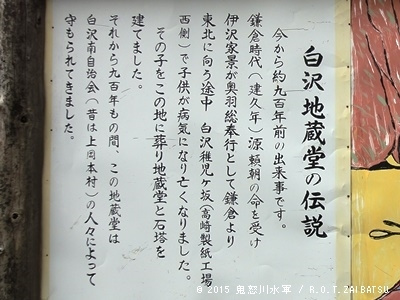 白沢地蔵堂の伝説
今から約九百年前の出来事です。
鎌倉時代(建久年)源 頼朝の命を受け
伊沢家景が奥羽総奉行として鎌倉より
東北に向う途中 白沢稚児ヶ坂(高崎製紙工場
西側)で子供が病気になり亡くなりました。
その子をこの地に葬り地蔵堂と石塔を
建てました。
それから九百年もの間、この地蔵堂は
白沢南自治会(昔は上岡本村)の人々によって
守もられてきました。
© 2015 鬼怒川水軍 / R.O.T.ZAIBATSU